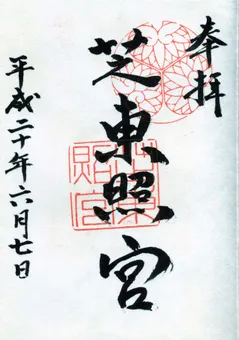 奉拝
芝東照宮
平成二十年六月七日